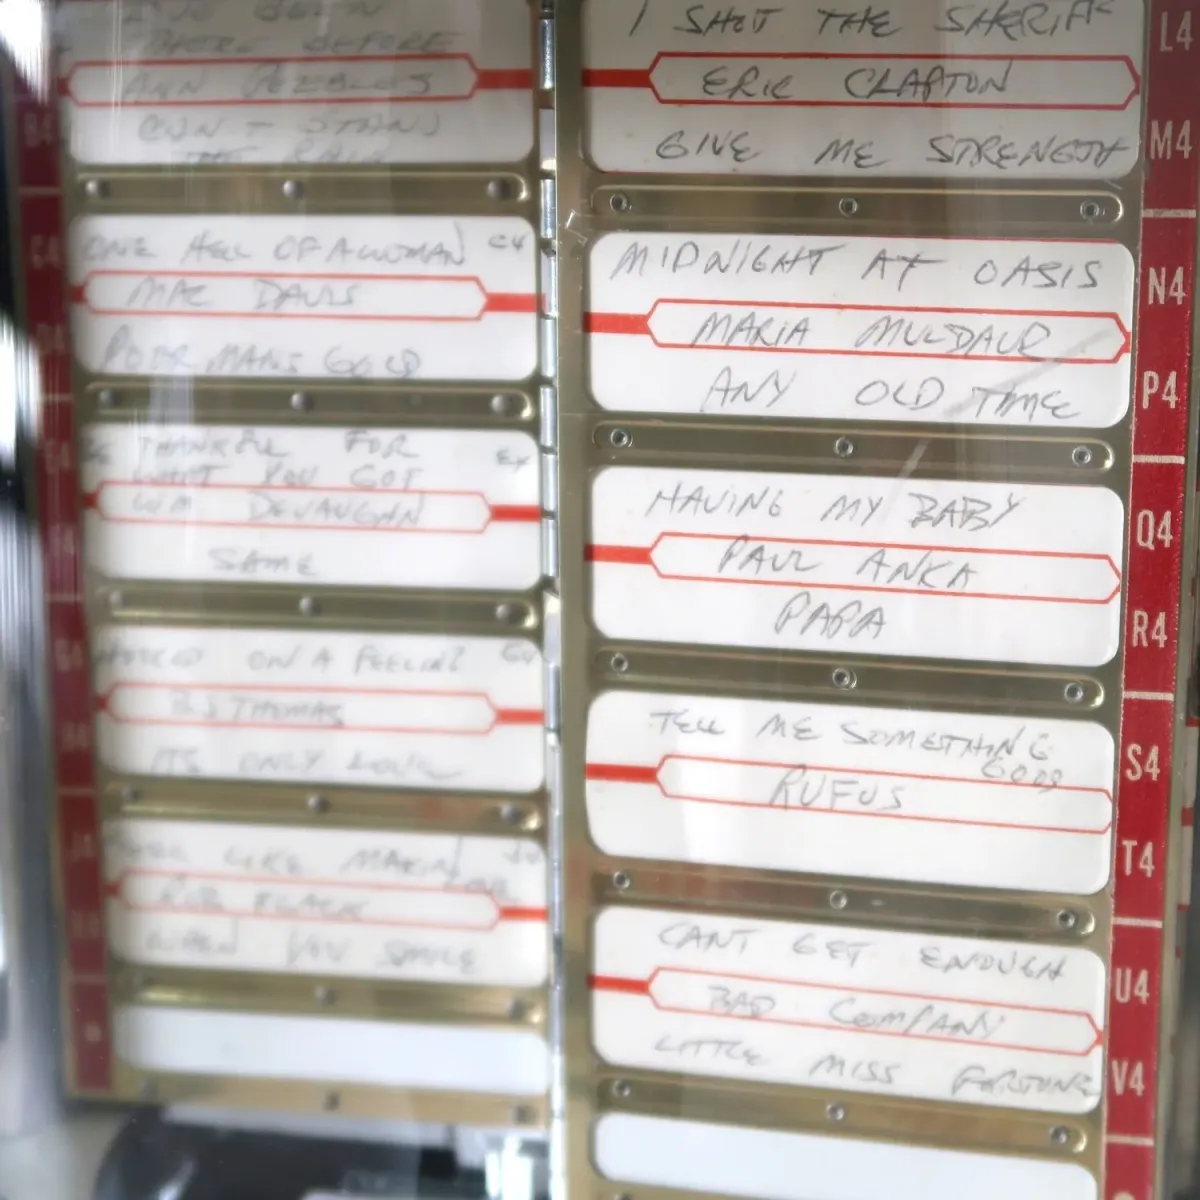 BEFORE
ANN PEEBLES
CAN'T STAND
THE RAIN
ONE HELL OF A WOMAN C4
MAC DAVIS
POOR MANS GOLD
THANKFUL FOR E4
WHAT YOU GOT
WM DEVAUGHN
SAME
HOOKED ON A FEELING G4
BJ THOMAS
ITS ONLY LOVE
FEEL LIKE MAKIN LOVE
ROB FLACK
WHEN YOU SMILE
I SHOT THE SHERIFF
ERIC CLAPTON
GIVE ME STRENGTH
MIDNIGHT AT OASIS
MARIA MULDAUR
ANY OLD TIME
HAVING MY BABY
PAUL ANKA
PAPA
TELL ME SOMETHING
GOOD
RUFUS
CANT GET ENOUGH
BAD COMPANY
LITTLE MISS FORTUNE
L4
M4
N4
P4
Q4
R4
S4
T4
U4
V4